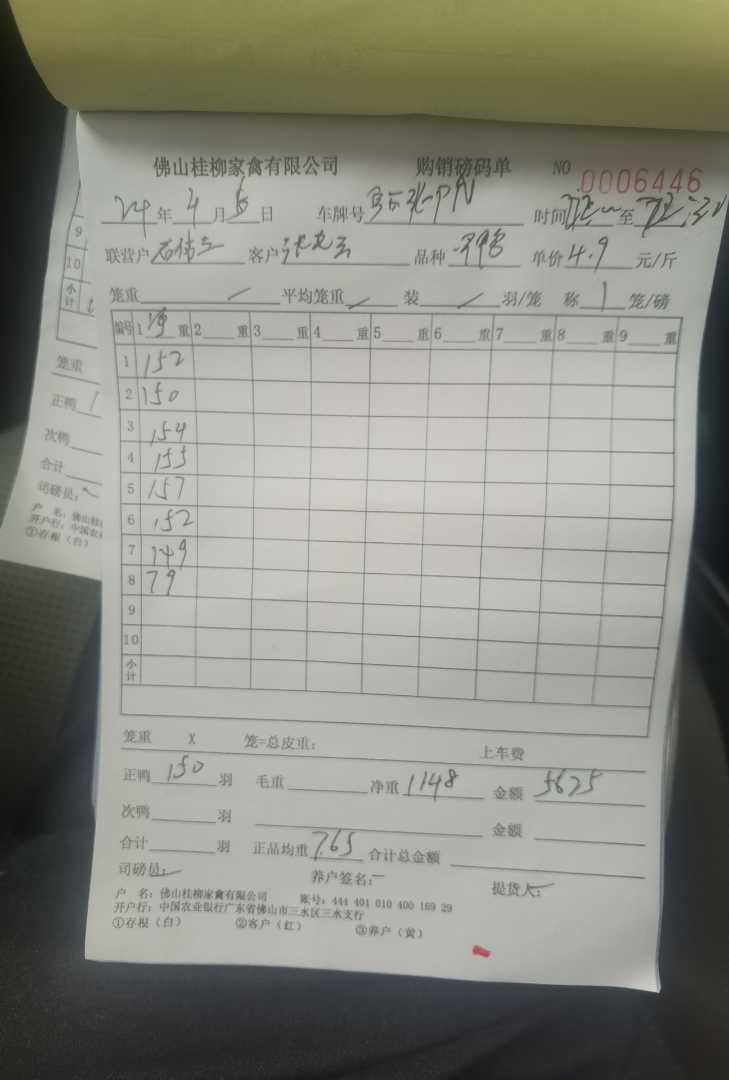 佛山桂柳家禽有限公司 购销磅码单 NO 0006446
24年4月5日 车牌号 时间 至
联营户 客户 品种 单价4.9元/斤
笼重 / 平均笼重 / 装 / 羽/笼 称1笼/磅
编号 1 重 2 重 3 重 4 重 5 重 6 重 7 重 8 重 9 重
1 152
2 150
3 154
4 155
5 157
6 152
7 149
8 79
9
10
小计
笼重 X 笼=总皮重: 上车费
正鸭 150 羽 毛重 净重 1148 金额 5625
次鸭 羽 金额
合计 羽 正品均重 7.65 合计总金额
司磅员: 养户签名: 提货人:
户 名: 佛山桂柳家禽有限公司 账号: 444 401 010 400 169 29
开户行: 中国农业银行广东省佛山市三水区三水支行
①存根(白) ②客户(红) ③养户(黄)
9
10
小计
笼重
正鸭
次鸭
合计
司磅员:
户 名: 佛山桂
开户行: 中国农
①存根(白)